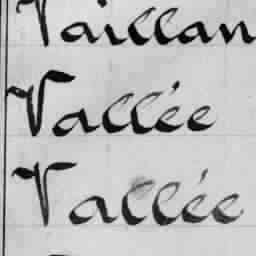 Vaillan
Vallée
Vallée